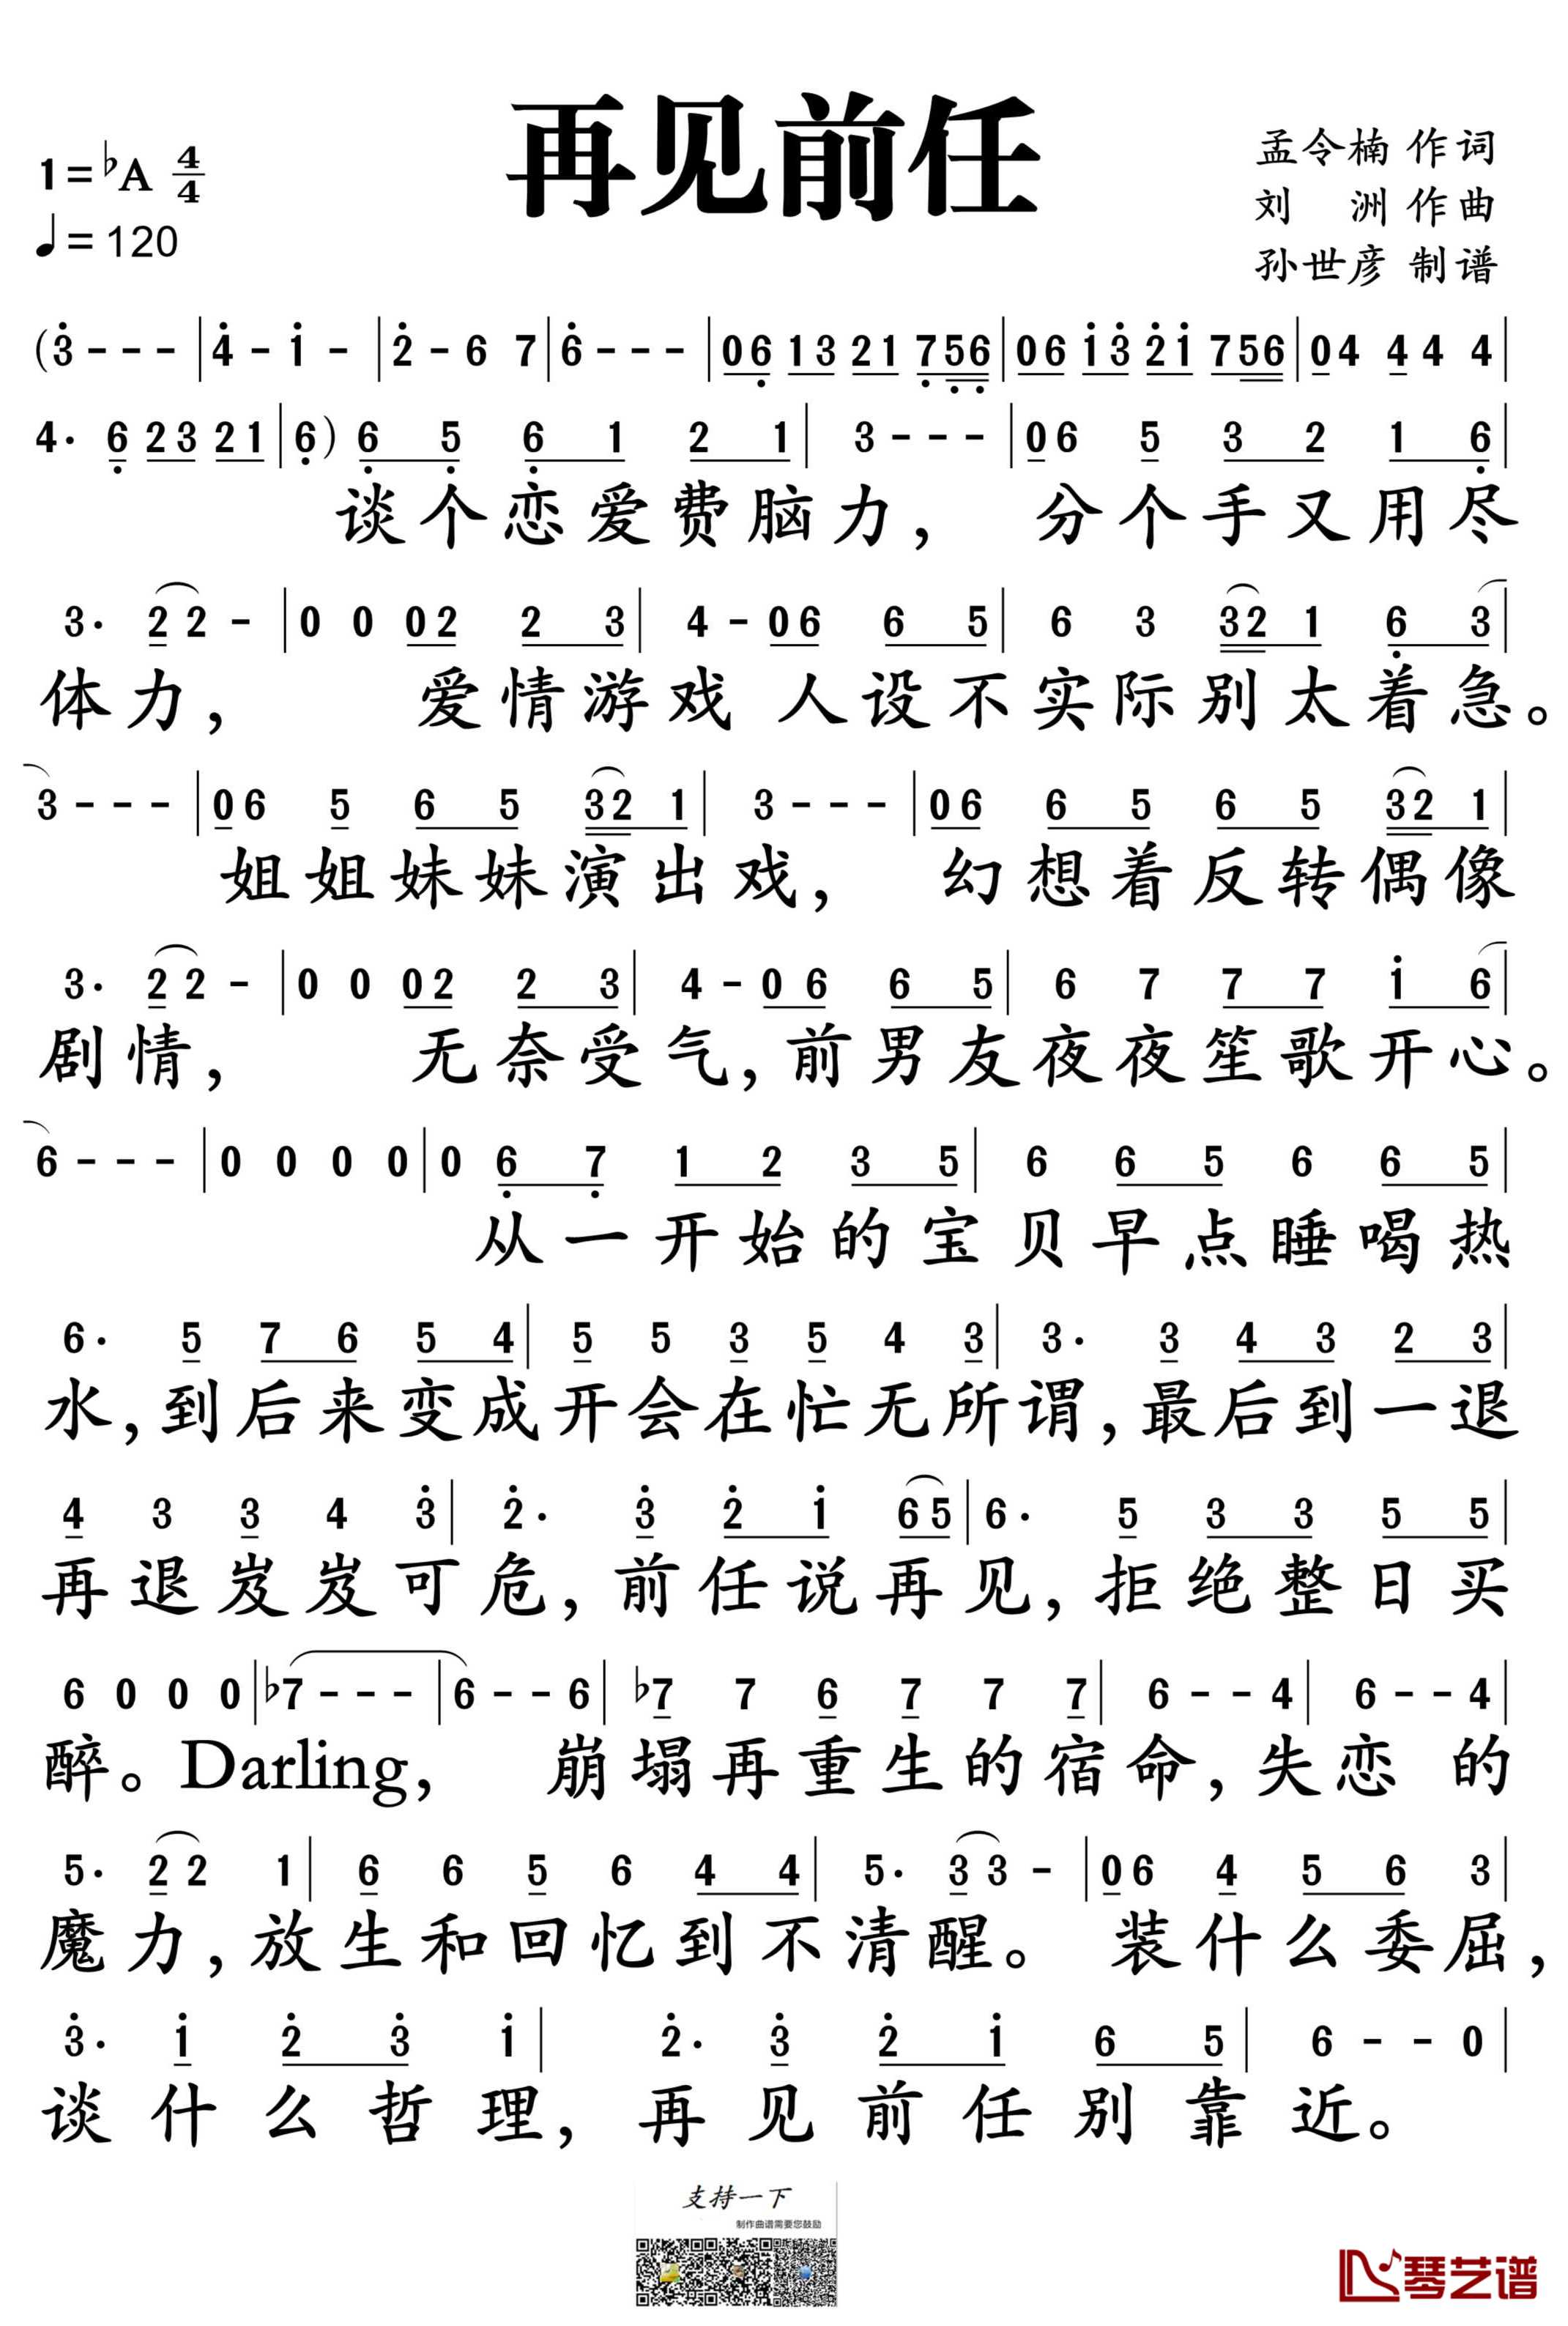 再见前任
1=♭A 4/4
♩=120
孟令楠 作词
刘 洲 作曲
孙世彦 制谱
(3̇ - - - | 4̇ - 1̇ - | 2̇ - 6 7 | 6̇ - - - | 06̣ 13 21 7̣5̣6̣ | 06 1̇3̇ 2̇1̇ 756 | 04 4 4 4 |
4· 6̣ 23 21 | 6̣) 6̣ 5̣ 6̣ 1 2 1 | 3 - - - | 06 5 3 2 1 6̣ |
谈个恋爱费脑力， 分个手又用尽
3· 2 2 - | 0 0 02 2 3 | 4 - 06 6 5 | 6 3 32 1 6̣ 3 |
体力， 爱情游戏 人设不实际别太着急。
3 - - - | 06 5 6 5 32 1 | 3 - - - | 06 6 5 6 5 32 1 |
姐姐妹妹演出戏， 幻想着反转偶像
3· 2 2 - | 0 0 02 2 3 | 4 - 06 6 5 | 6 7 7 7 1̇ 6 |
剧情， 无奈受气，前男友夜夜笙歌开心。
6 - - - | 0 0 0 0 | 0 6̣ 7̣ 1 2 3 5 | 6 6 5 6 6 5 |
从一开始的宝贝早点睡喝热
6· 5 7 6 5 4 | 5 5 3 5 4 3 | 3· 3 4 3 2 3 |
水，到后来变成开会在忙无所谓，最后到一退
4 3 3 4 3̇ | 2̇· 3̇ 2̇ 1̇ 65 | 6· 5 3 3 5 5 |
再退岌岌可危，前任说再见，拒绝整日买
6 0 0 0 | ♭7 - - - | 6 - - 6 | ♭7 7 6 7 7 7 | 6 - - 4 | 6 - - 4 |
醉。Darling， 崩塌再重生的宿命，失恋 的
5· 2 2 1 | 6 6 5 6 4 4 | 5· 3 3 - | 06 4 5 6 3 |
魔力，放生和回忆到不清醒。 装什么委屈，
3̇· 1̇ 2̇ 3̇ 1̇ | 2̇· 3̇ 2̇ 1̇ 6 5 | 6 - - 0 |
谈什么哲理，再见前任别靠近。
支持一下
制作曲谱需要您鼓励
琴艺谱